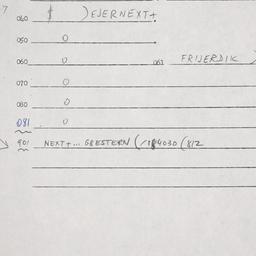 7
040 )EJERNEXT+
050 0
060 0 063 FRIJERDIK
070 0
080 0
081 0
901 NEXT+... GBESTERN (/184030 (812